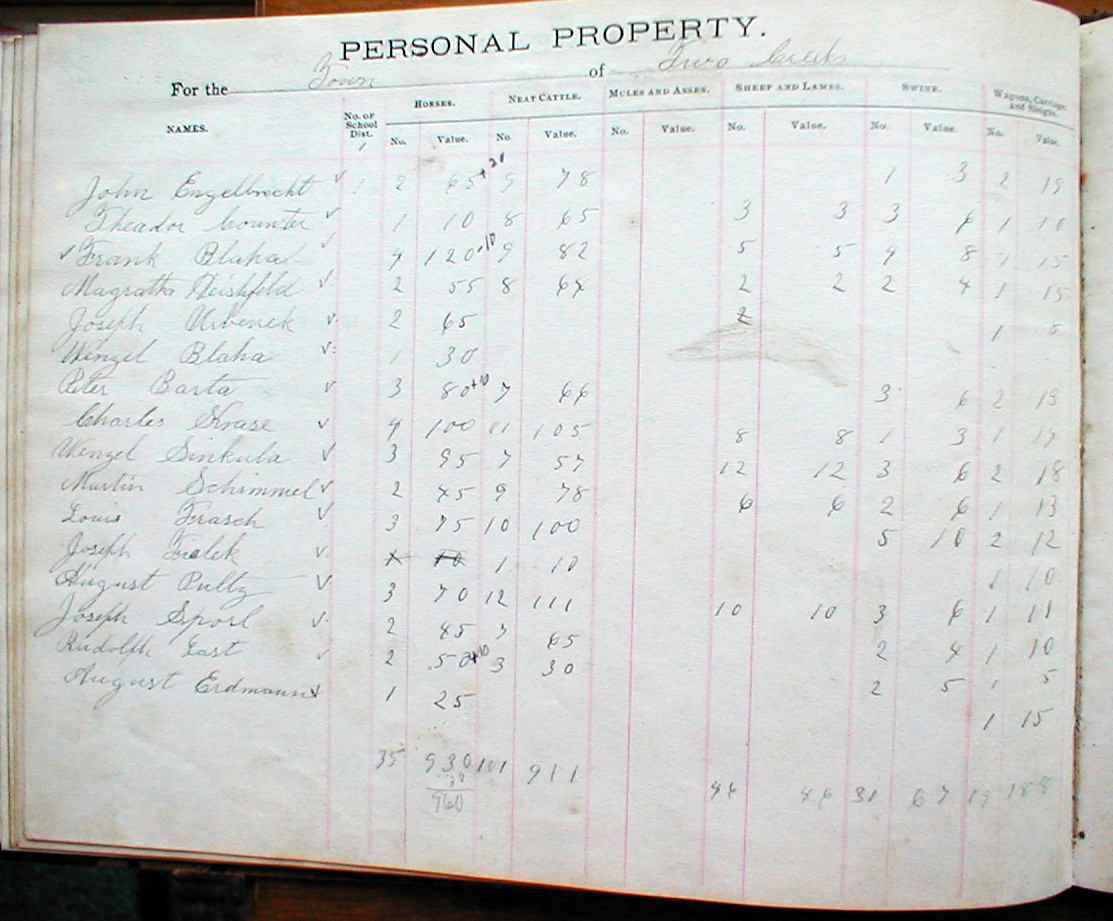 PERSONAL PROPERTY.
For the Town of Two Creeks
NAMES. No. of School Dist. HORSES. NEAT CATTLE. MULES AND ASSES. SHEEP AND LAMBS. SWINE. Wagons, Carriages and Sleighs.
No. Value. No. Value. No. Value. No. Value. No. Value. No. Value.
1
John Engelbrecht √ 1 2 65+20 9 78 1 3 2 19
Theador Counter √ 1 10 8 65 3 3 3 6 1 10
√ Frank Blaha √ 4 120+10 9 82 5 5 4 8 1 15
Magratha √ 2 55 8 64 2 2 2 4 1 15
Joseph √ 2 65 2 1 5
Wenzel Blaha √ 1 30
Peter Barta √ 3 80+10 7 66 3 6 2 19
Charles Krase √ 4 100 11 105 8 8 1 3 1 17
Wenzel Sinkula √ 3 95 7 57 12 12 3 6 2 18
Martin Schimmel √ 2 45 9 78 6 6 2 6 1 13
Louis Frasch √ 3 75 10 100 5 10 2 12
Joseph √ 1 10 1 10 1 10
August Pultz √ 3 70 12 111 10 10 3 6 1 11
Joseph Sporl √ 2 45 7 65 2 4 1 10
Rudolph Last √ 2 50+10 3 30 2 5 1 5
August Erdmann √ 1 25 1 15
35 930 101 911 46 46 31 67 19 188
30
960